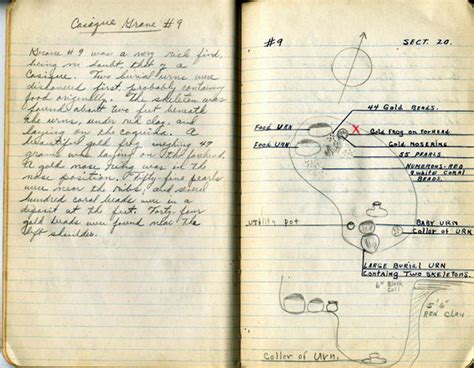 Casique Grave #9
Grave #9 was a very rich find,
being no doubt, that of a
Casique. Two burial urns were
discovered first, probably containing
food originally. The skeleton was
found about two feet beneath
the urns, under red clay, and
laying on the coquina. A
beautiful gold frog, weighing 47
grams was laying on the forehead.
A gold nose ring was in the
nose position. Fifty-five pearls
were near the ribs, and several
hundred coral beads were in a
deposit at the feet. Forty-four
gold beads were found near the
left shoulder.
#9
SECT. 20.
44 Gold BEADS.
X
Food URN
Gold FROG ON FOREHEAD
Food URN
Gold NOSERING
55 PEARLS
NUMEROUS RED
& WHITE CORAL
BEADS.
Utility Pot
BABY URN
Coller of URN
LARGE BURIAL URN
CONTAINING TWO SKELETONS.
6" Black
Soil
5'6"
RED CLAY
Coller of Urn,